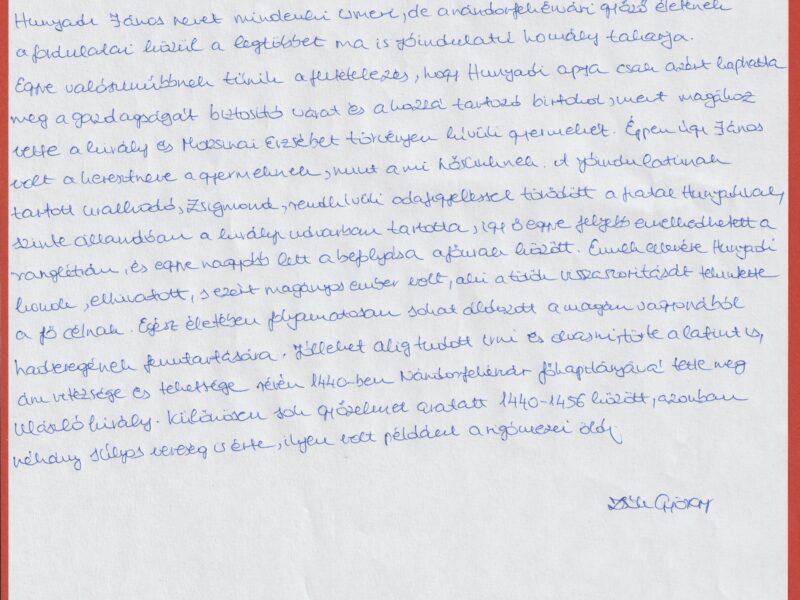 Hunyadi János nevét mindenki ismeri, de a nándorfehérvári győző életének
a fordulatai közül a legtöbbet ma is jóindulatú homály takarja.
Egyre valószínűbbnek tűnik a feltételezés, hogy Hunyadi apja csak azért kaphatta
meg a gazdagságát biztosító várat és a hozzá tartozó birtokot, mert magához
vette a király és Morzsinai Erzsébet törvényen kívüli gyermekét. Éppen úgy János
volt a keresztneve a gyermeknek, mint a mi hősünknek. A jóindulatúnak
tartott uralkodó, Zsigmond, rendkívüli odafigyeléssel törődött a fiatal Hunyadival,
szinte állandóan a királyi udvarban tartotta, így ő egyre feljebb emelkedhetett a
ranglétrán, és egyre nagyobb lett a befolyása a főurak között. Ennek ellenére Hunyadi
konok, elhivatott, s ezért magányos ember volt, aki a török visszaszorítását tekintette
a fő célnak. Egész életében folyamatosan sokat áldozott a magán vagyonából
hadseregének fenntartására. Jóllehet alig tudott írni és olvasni, törte a latint is,
ám vitézsége és tehetsége révén 1440-ben Nándorfehérvár főkapitányává tette meg
Ulászló király. Különösen sok győzelmet aratott 1440-1456 között, azonban
néhány súlyos vereség is érte, ilyen volt például a rigómezei